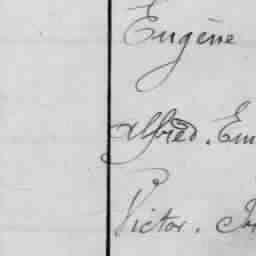 Eugène
Alfred. Em
Victor. Jo